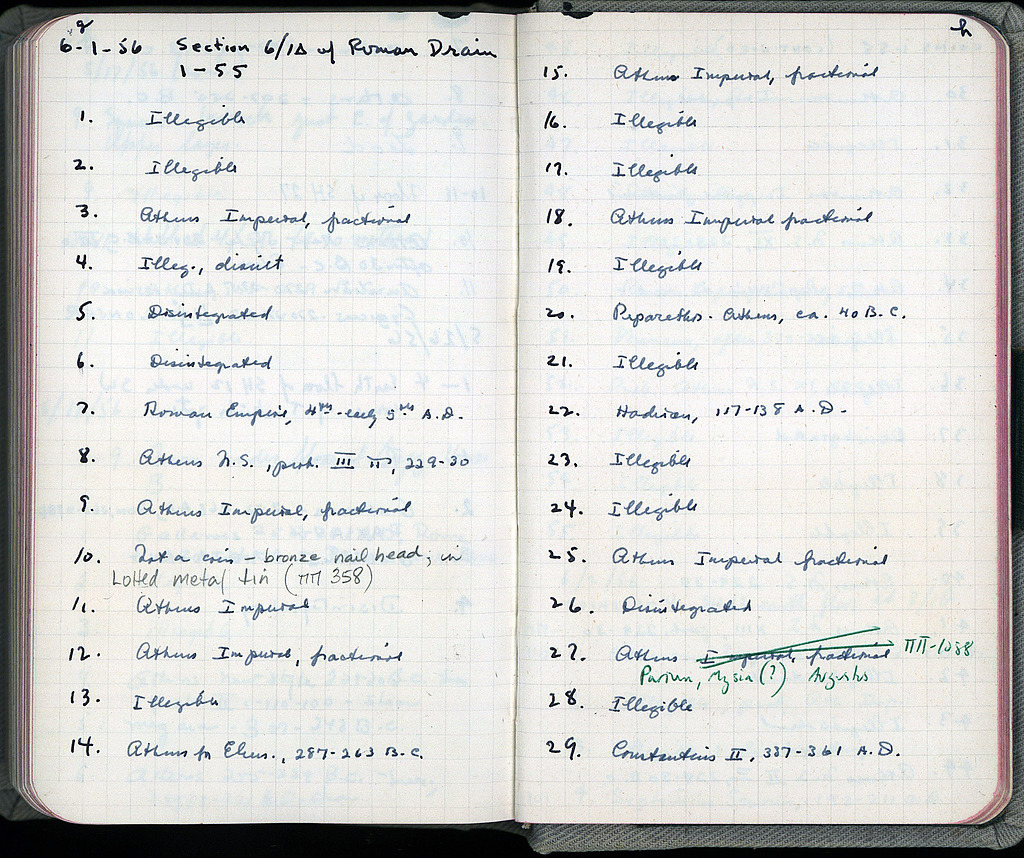 g
6-1-56 Section 6/1Δ of Roman Drain
1-55
1. Illegible
2. Illegible
3. Athens Imperial, fractional
4. Illeg., discint
5. Disintegrated
6. Disintegrated
7. Roman Empire, 4th-early 5th A.D.
8. Athens N.S., prob. III, 229-30
9. Athens Imperial, fractional
10. Not a coin - bronze nail head; in
Lotted metal tin (ΠΠ 358)
11. Athens Imperial
12. Athens Imperial, fractional
13. Illegible
14. Athens for Eleus., 287-263 B.C.
h
15. Athens Imperial, fractional
16. Illegible
17. Illegible
18. Athens Imperial fractional
19. Illegible
20. Peparethos - Athens, ca. 40 B.C.
21. Illegible
22. Hadrian, 117-138 A.D.
23. Illegible
24. Illegible
25. Athens Imperial fractional
26. Disintegrated
27. Athens Imperial, fractional ΠΠ-1088
Parium, Mysia (?) Augustus
28. Illegible
29. Constantius II, 337-361 A.D.